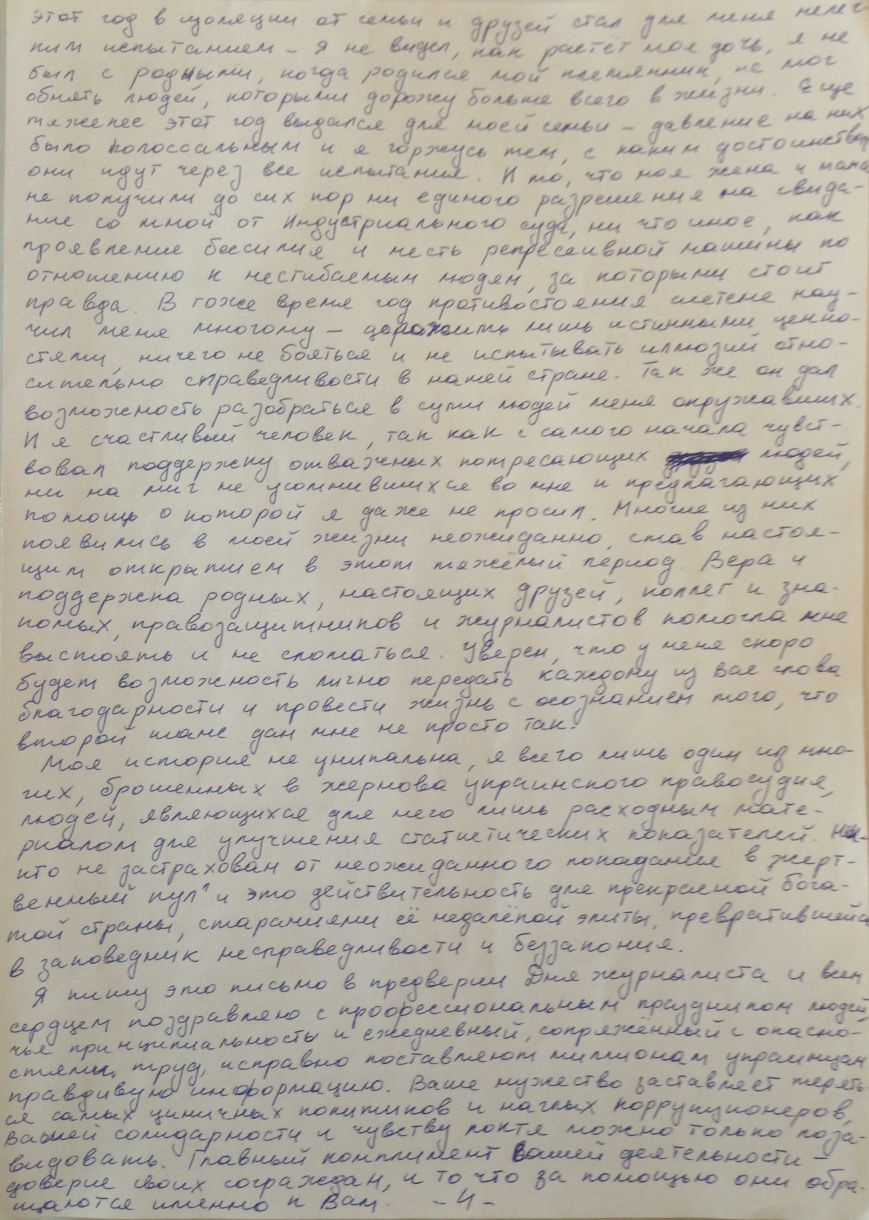 Этот год в изоляции от семьи и друзей стал для меня нелёг-
ким испытанием – Я не видел, как растёт моя дочь, я не
был с родными, когда родился мой племянник, не мог
обнять людей, которыми дорожу больше всего в жизни. Еще
тяжелее этот год выдался для моей семьи – давление на них
было колоссальным и я горжусь тем, с каким достоинством
они идут через все испытания. И то, что моя жена и мама
не получили до сих пор ни единого разрешения на свида-
ние со мной от Индустриального суда, ни что иное, как
проявление бессилия и месть репрессивной машины по
отношению к несгибаемым людям, за которыми стоит
правда. В тоже время год противостояния системе нау-
чил меня многому – дорожить лишь истинными ценно-
стями, ничего не бояться и не испытывать иллюзий отно-
сительно справедливости в нашей стране. Так же он дал
возможность разобраться в сути людей меня окружавших.
И я счастливый человек, так как с самого начала чувст-
вовал поддержку отважных потрясающих людей,
ни на миг не усомнившихся во мне и предлагающих
помощь о которой я даже не просил. Многие из них
появились в моей жизни неожиданно, став настоя-
щим открытием в этот тяжёлый период. Вера и
поддержка родных, настоящих друзей, коллег и зна-
комых, правозащитников и журналистов помогла мне
выстоять и не сломаться. Уверен, что у меня скоро
будет возможность лично передать каждому из Вас слова
благодарности и провести жизнь с осознанием того, что
второй шанс дан мне не просто так.
Моя история не уникальна, я всего лишь один из мно-
гих, брошенных в жернова украинского правосудия,
людей, являющихся для него лишь расходным мате-
риалом для улучшения статистических показателей. Ни-
кто не застрахован от неожиданного попадания в жерт-
венный пул" и это действительность для прекрасной бога-
той страны, стараниями её недалёкой элиты, превратившейся
в заповедник несправедливости и беззакония.
Я пишу это письмо в предверии Дня журналиста и всем
сердцем поздравляю с профессиональным праздником людей,
чья принципиальность и ежедневный, сопряжённый с опасно-
стями, труд, исправно поставляют миллионам украинцам
правдивую информацию. Ваше мужество заставляет терять-
ся самых циничных политиков и наглых коррупционеров,
Вашей солидарности и чувству локтя можно только поза-
видовать. Главный комплимент Вашей деятельности –
доверие своих сограждан, и то что за помощью они обра-
щаются именно к Вам. -4-